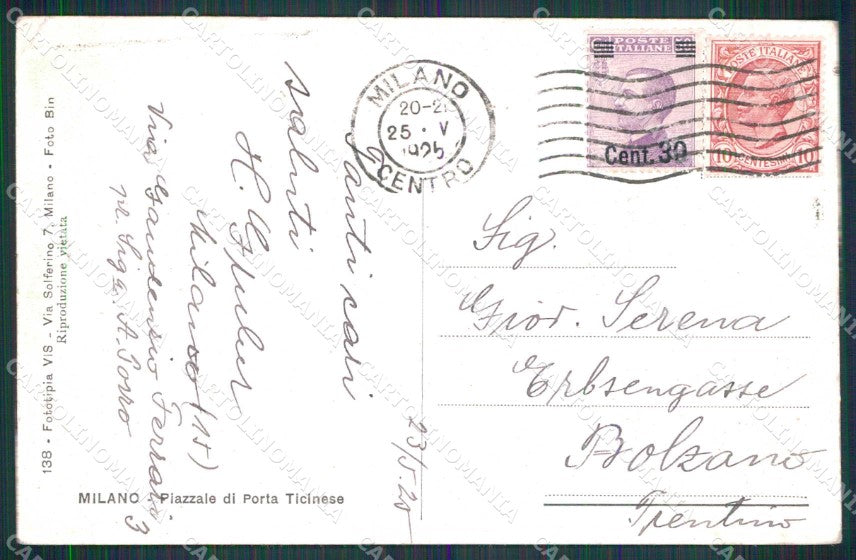 MILANO
20-21
25 · V
1925
CENTRO
POSTE
ITALIANE
Cent. 30
POSTE ITALIANE
10 CENTESIMI 10
Tanti cari
saluti
H. Gruber
Milano (15)
Via Gaudenzio Ferrari 3
pr. Sig.a A. Porro
23/5.25
Sig.
Giov. Serena
Erbsengasse
Bolzano
Trentino
138 - Fototipia VIS - Via Solferino 7, Milano - Foto Bin
Riproduzione vietata
MILANO - Piazzale di Porta Ticinese
CARTOLINOMANIA